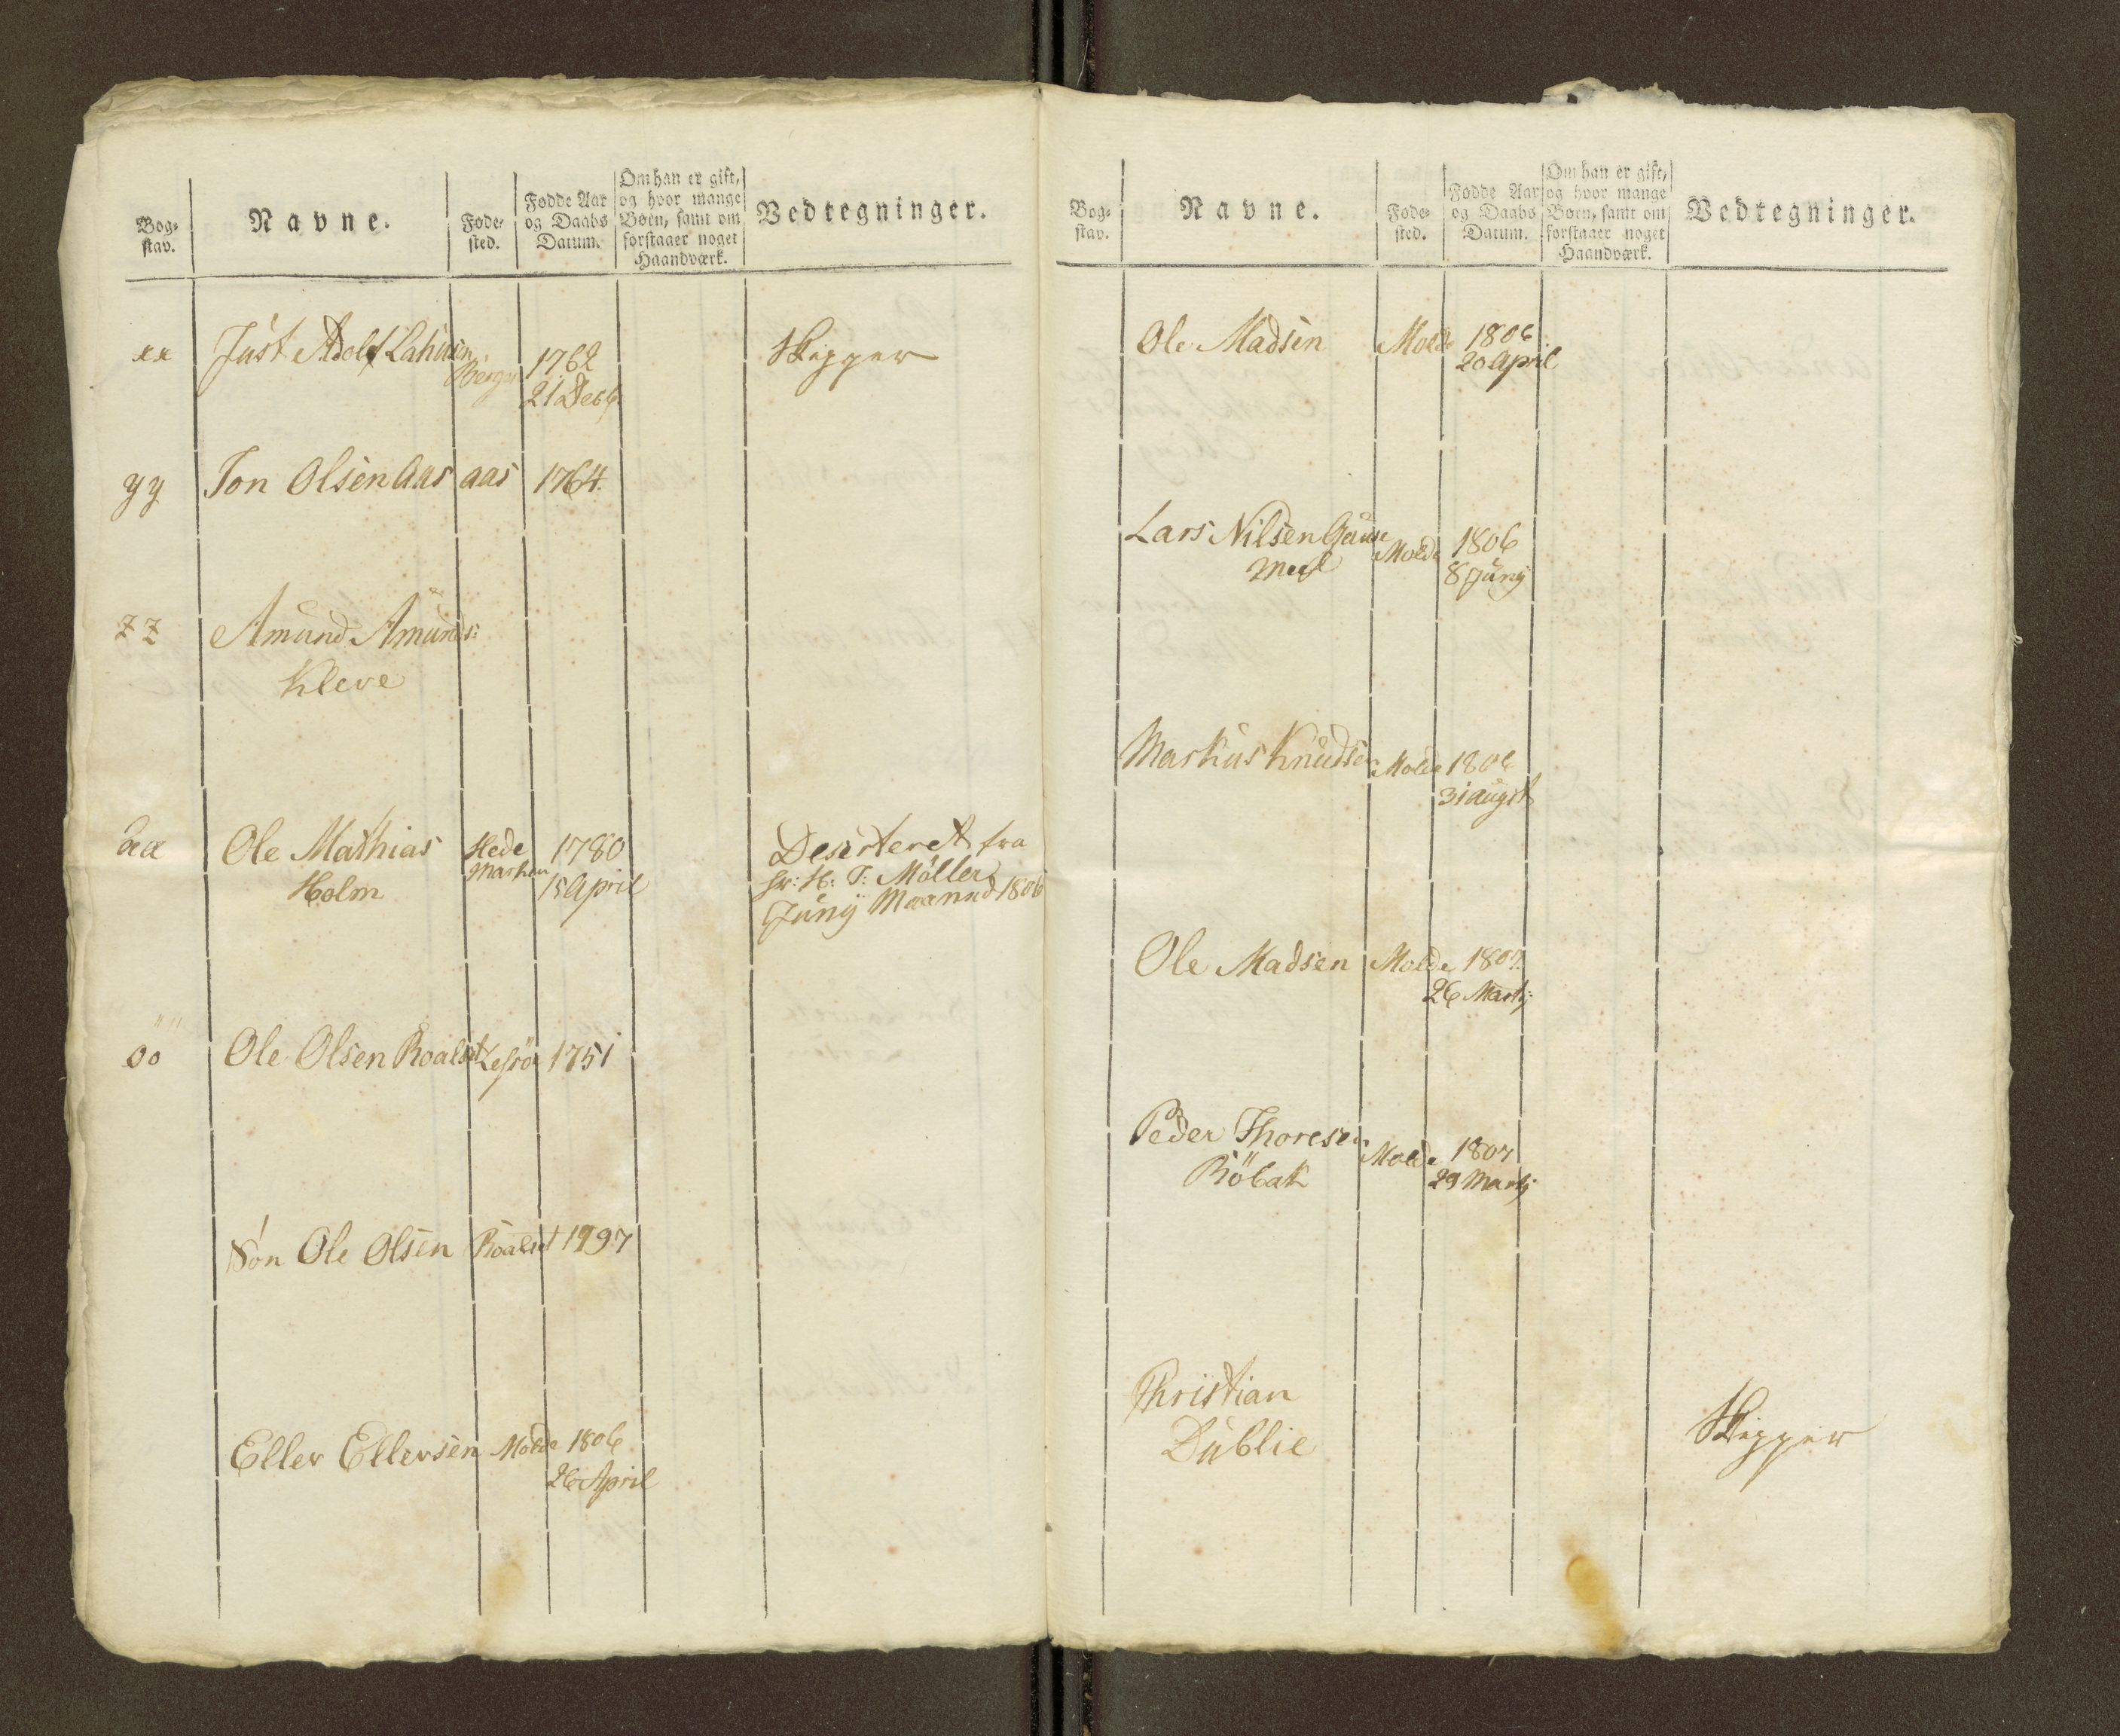 Bog-
stav.
Navne.
Føde-
sted.
Fødde Aar
og Daabs
Datum.
Om han er gift,
og hvor mange
Børn, samt om
forstaaer noget
Haandværk.
Vedtegninger.
xx Just Adolf Lahusen Bergen 1762 Skipper
21 Decb.
yy Jon Olsen Aas aas 1764
zz Amund Amunds:
Kleve
Ole Mathias Hede 1780 Deserteret fra
Holm Marken 15 April H: T: Møller
Juny Maanned 1806
öö Ole Olsen Roalset 1751
Søn Ole Olsen Roalset 1797
Eller Ellersen Molde 1806
26 April
Bog-
stav.
Navne.
Føde-
sted.
Fødde Aar
og Daabs
Datum.
Om han er gift,
og hvor mange
Børn, samt om
forstaaer noget
Haandværk.
Vedtegninger.
Ole Madsen Molde 1806
20 April
Lars Nilsen Molde 1806
8 Juny
Markus Knudsen Molde 1806
31 augst
Ole Madsen Molde 1807
26 Martj
Peder Thoresen Molde 1807
Röbak 29 Martj
Christian
Dublie Skipper